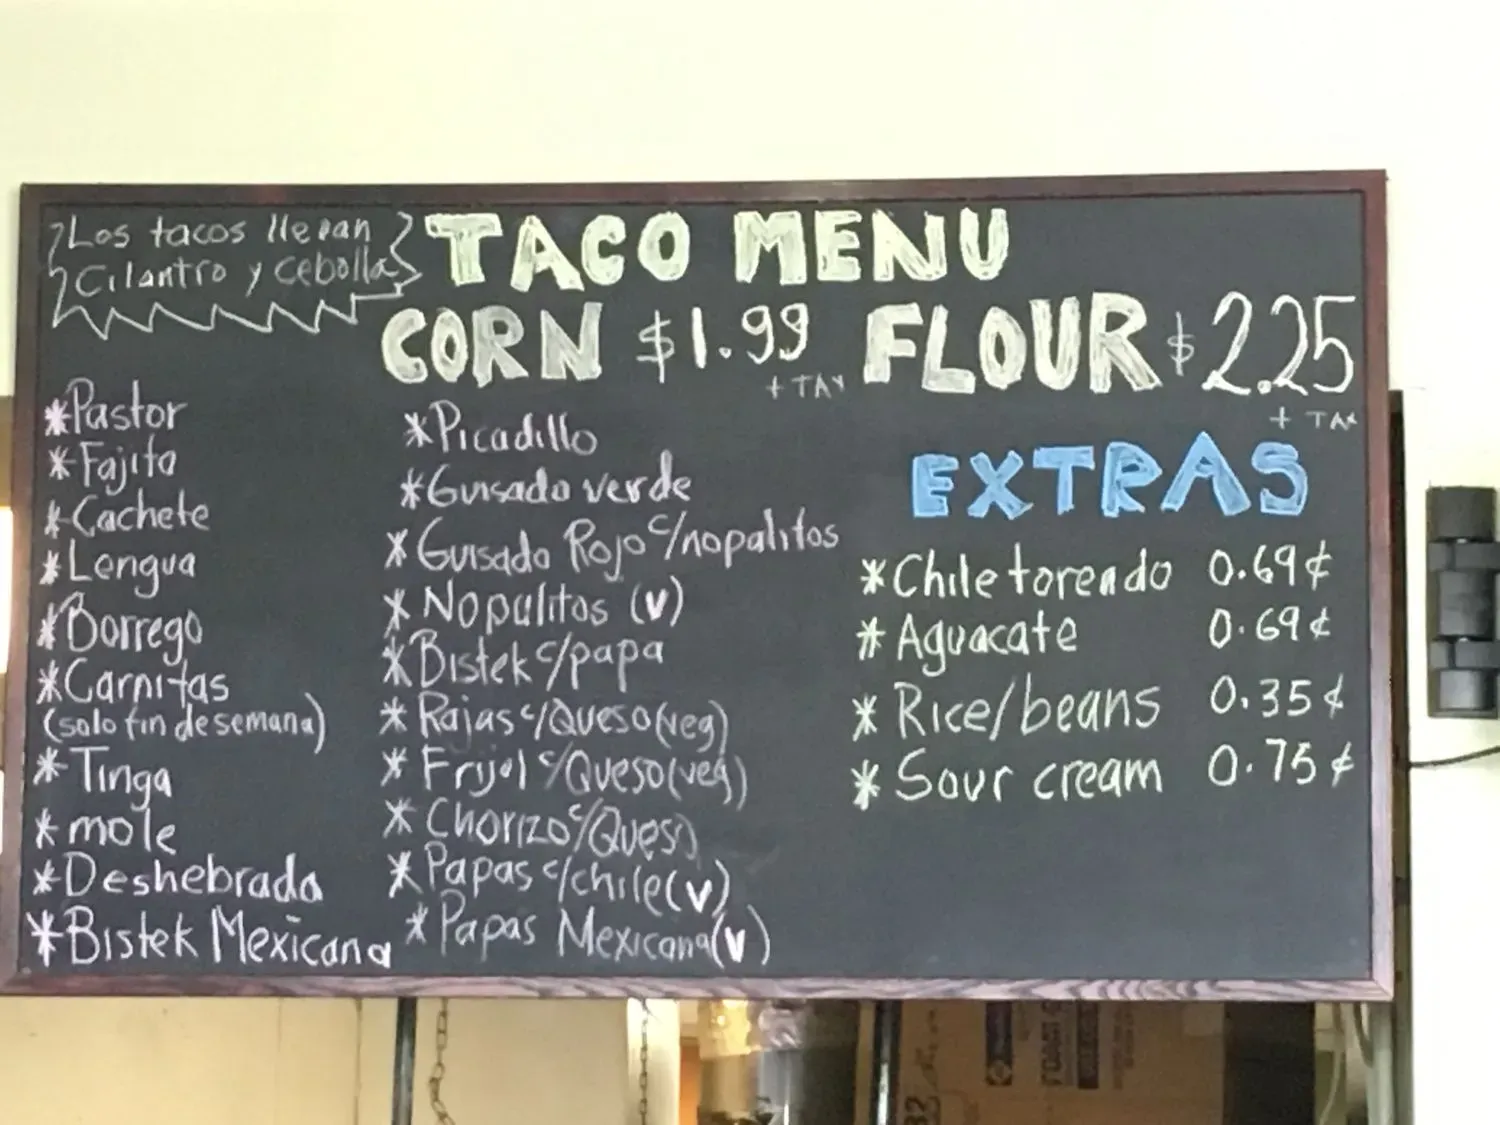 Los tacos llevan
Cilantro y cebolla
TACO MENU
CORN $1.99 FLOUR $2.25
+ TAX
+ TAX
*Pastor
*Fajita
*Cachete
*Lengua
*Borrego
*Carnitas
(solo fin de semana)
*Tinga
*mole
*Deshebrada
*Bistek Mexicana
*Picadillo
*Guisado verde
*Guisado Rojo c/nopalitos
*Nopalitos (v)
*Bistek c/papa
*Rajas c/Queso(veg)
*Frijol c/Queso(veg)
*Chorizo c/Queso
*Papas c/chile(v)
*Papas Mexicana(v)
EXTRAS
*Chile toreado 0.69¢
*Aguacate 0.69¢
*Rice/beans 0.35¢
*Sour cream 0.75¢